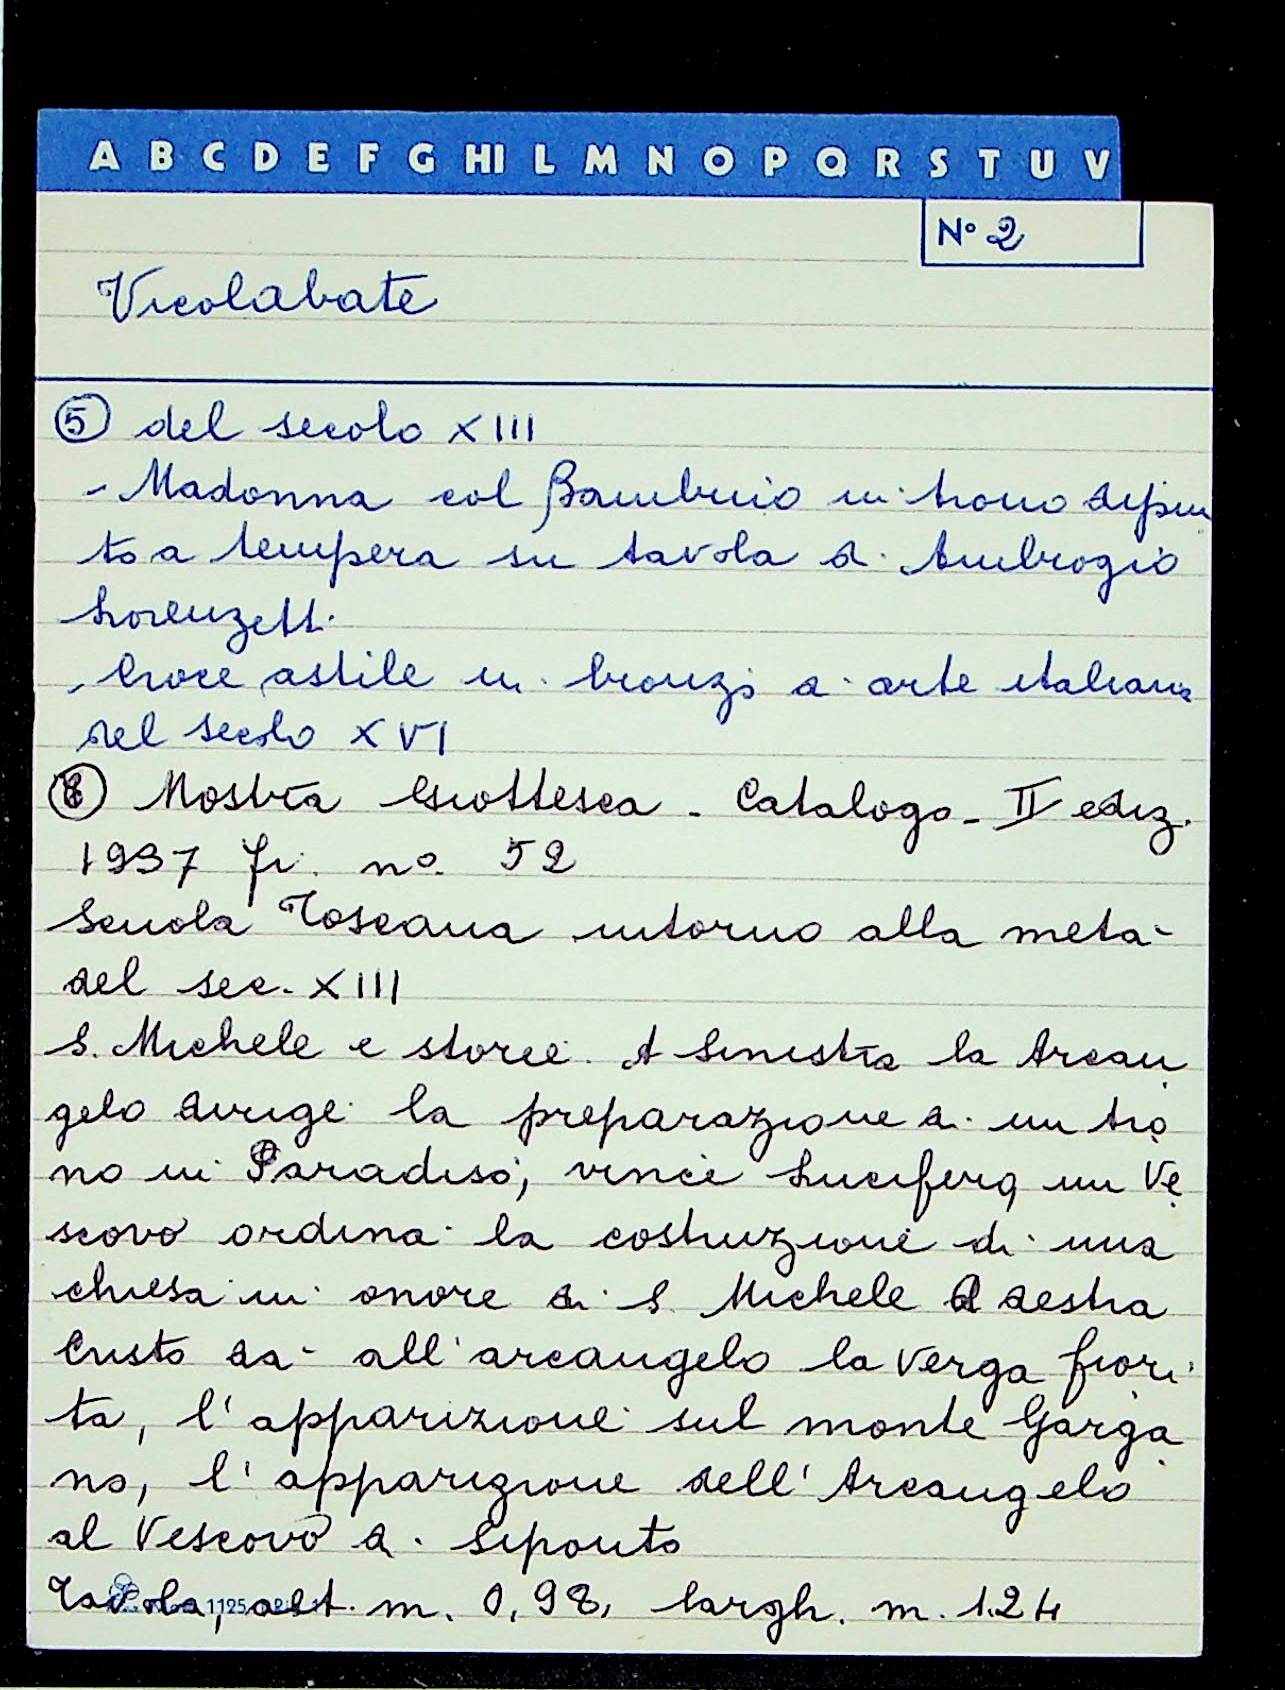 A B C D E F G HI L M N O P Q R S T U V
N° 2
Vicolabate
5 del secolo XIII
- Madonna col Bambino in trono dipin
to a tempera su tavola di Ambrogio
Lorenzetti
- Croce astile in bronzo di arte italiana
del secolo XVI
Mostra Giottesca - Catalogo - II ediz.
1937 fi. n°. 52
Scuola Toscana intorno alla metà
del sec. XIII
S. Michele e storie. A Sinistra la Arcan
gelo dirige la preparazione di un tro
no in Paradiso; vince Lucifero, un Ve
scovo ordina la costruzione di una
chiesa in onore di S. Michele A destra
Cristo dà all'arcangelo la verga fiori
ta, l'apparizione sul monte Garga
no, l'apparizione dell'Arcangelo
al Vescovo di Siponto
Tavola, alt. m. 0,98, largh. m. 1.24